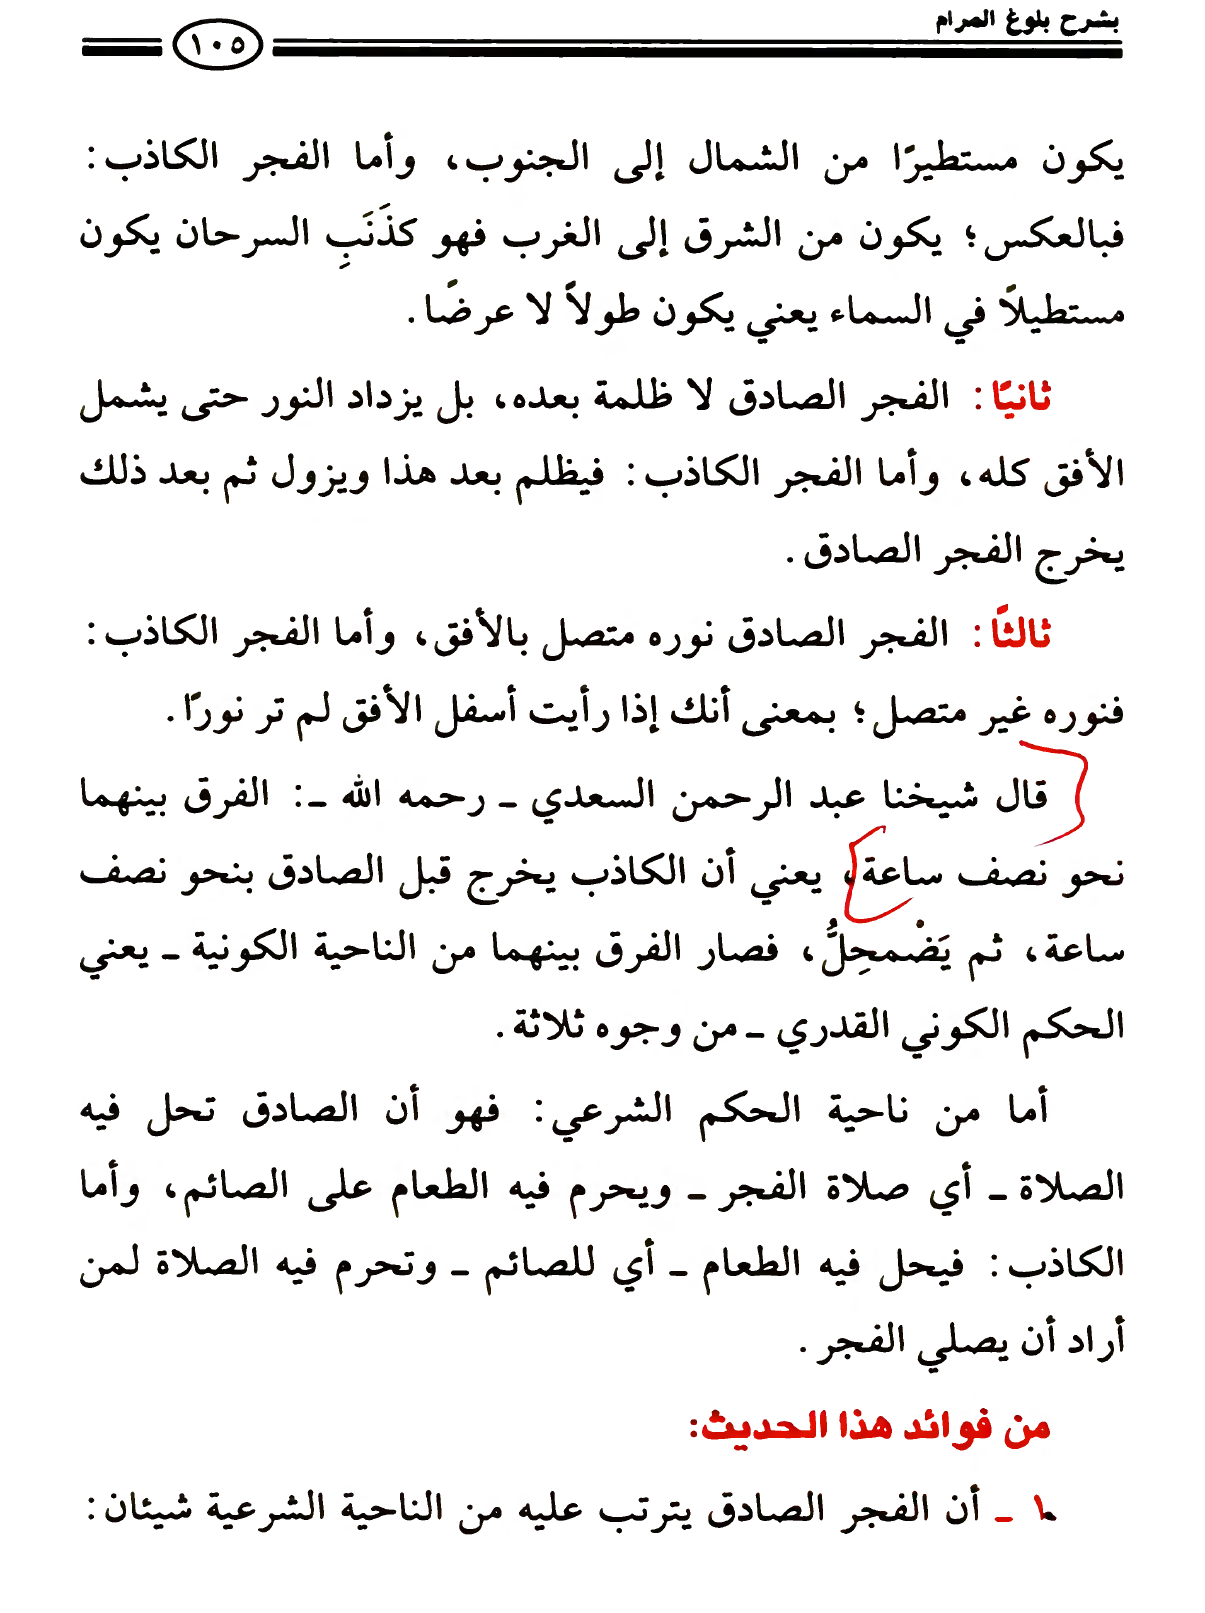 بشرح بلوغ المرام
١٠٥
يكون مستطيرًا من الشمال إلى الجنوب، وأما الفجر الكاذب:
فبالعكس؛ يكون من الشرق إلى الغرب فهو كذَنَبِ السرحان يكون
مستطيلاً في السماء يعني يكون طولاً لا عرضًا.
ثانيًا: الفجر الصادق لا ظلمة بعده، بل يزداد النور حتى يشمل
الأفق كله، وأما الفجر الكاذب: فيظلم بعد هذا ويزول ثم بعد ذلك
يخرج الفجر الصادق.
ثالثًا: الفجر الصادق نوره متصل بالأفق، وأما الفجر الكاذب:
فنوره غير متصل؛ بمعنى أنك إذا رأيت أسفل الأفق لم تر نورًا.
قال شيخنا عبد الرحمن السعدي ـ رحمه الله ـ: الفرق بينهما
نحو نصف ساعة، يعني أن الكاذب يخرج قبل الصادق بنحو نصف
ساعة، ثم يَضْمحِلُّ، فصار الفرق بينهما من الناحية الكونية ـ يعني
الحكم الكوني القدري ـ من وجوه ثلاثة.
أما من ناحية الحكم الشرعي: فهو أن الصادق تحل فيه
الصلاة ـ أي صلاة الفجر ـ ويحرم فيه الطعام على الصائم، وأما
الكاذب: فيحل فيه الطعام ـ أي للصائم ـ وتحرم فيه الصلاة لمن
أراد أن يصلي الفجر.
من فوائد هذا الحديث:
١ ـ أن الفجر الصادق يترتب عليه من الناحية الشرعية شيئان: